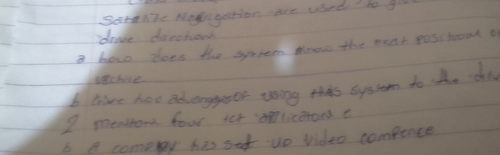 Satellite Navigation are used to give
drive direction
a how does the system know the exat position
vechie
b Give two advangesof using this system to the
2 mention four ict applications
b a company has set up video comfence